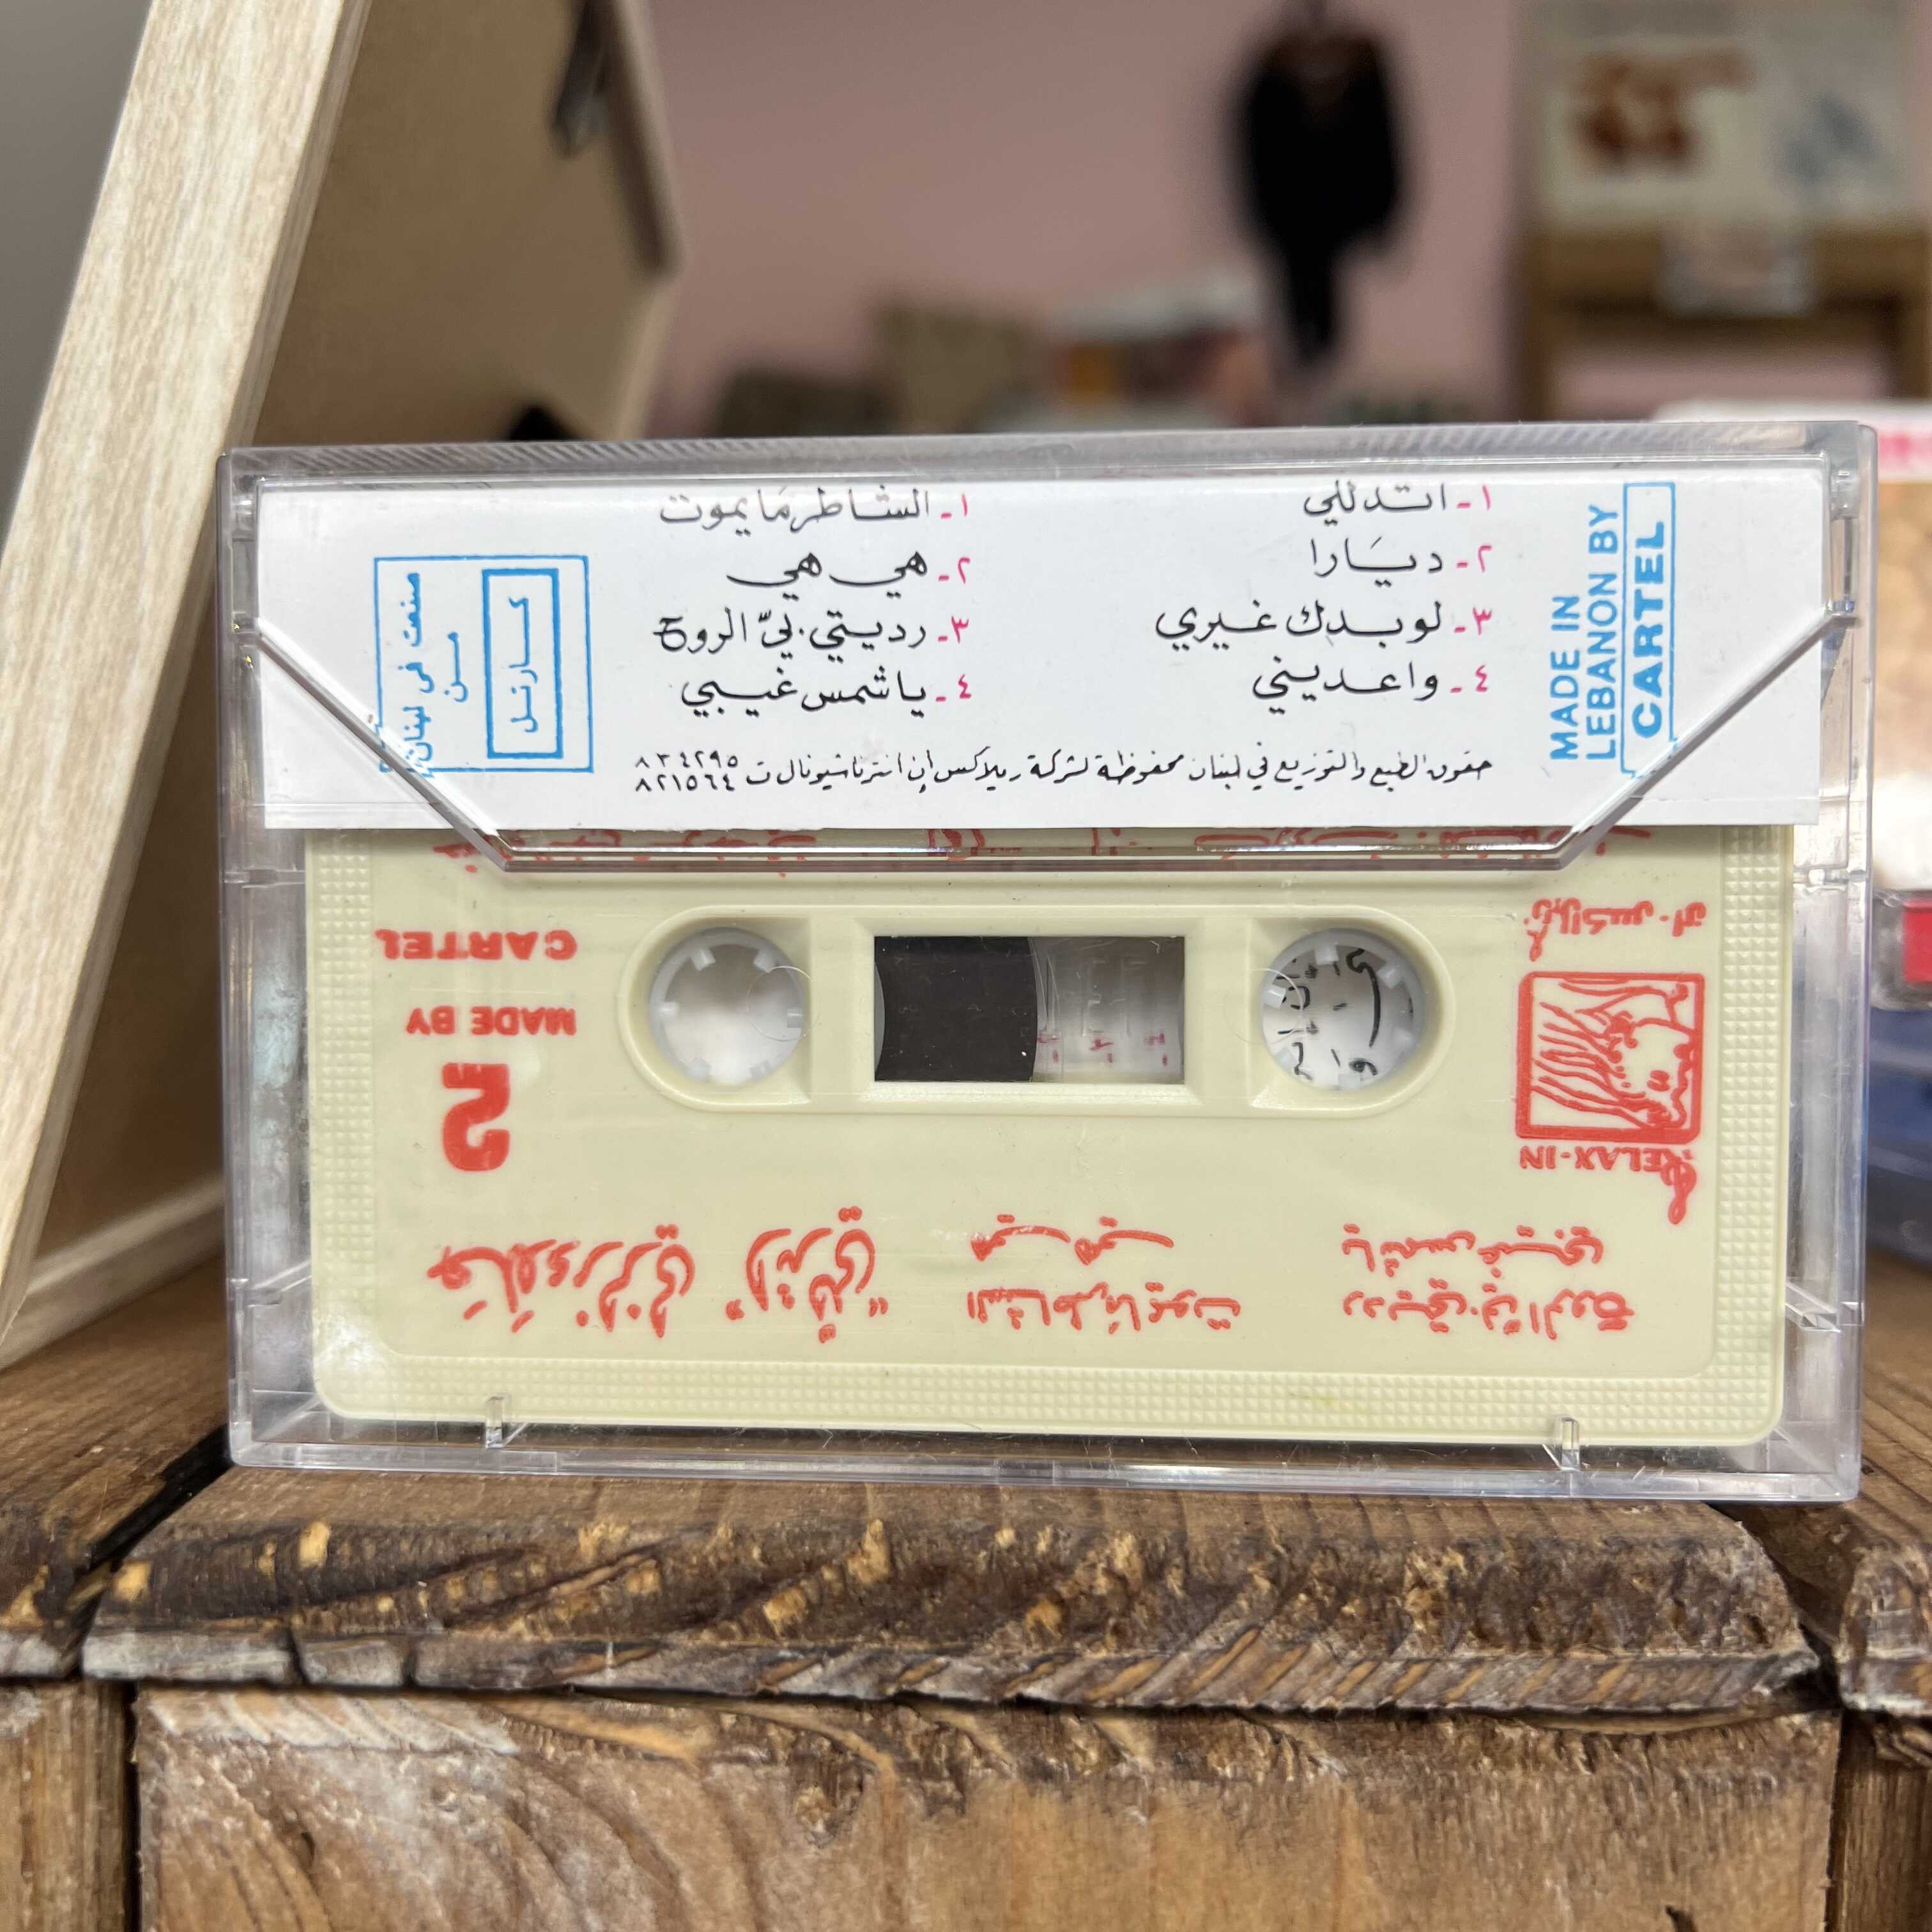 ١ - اتدللي
٢ - ديارا
٣ - لو بدك غيري
٤ - واعديني
١ - الشاطر ما يموت
٢ - هي هي
٣ - رديتي بيّ الروح
٤ - يا شمس غيبي
حقوق الطبع والتوزيع في لبنان محفوظة لشركة ريلاكس إن انترناشيونال ت ٨٣٤٢٩٥
٨٢١٥٦٤
MADE IN
LEBANON BY
CARTEL
صنعت في لبنان
من
كارتل
ريلاكس - ان
RELAX-IN
CARTEL
MADE BY
2
رديتي بيّ الروح
يا شمس غيبي
الشاطر ما يموت
هي هي